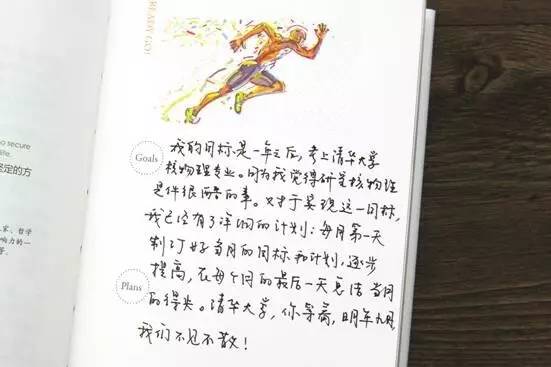 READY GO!
Goals
我的目标是一年之后,考上清华大学
核物理专业。因为我觉得研究核物理
是件很酷的事。对于实现这一目标,
我已经有了详细的计划:每月第一天
制订好当月的目标和计划,逐步
提高,在每个月的最后一天总结当月
的得失。清华大学,你等着,明年九月
我们不见不散!
Plans
o secure
life.
定的方
家、哲学
响力的一